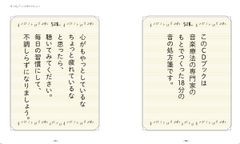 このCDブックは
音楽療法の専門家の
もとでつくった18分の
音の処方箋です。
心がもやっとしているな
ちょっと疲れているな
と思ったら、
聴いてみてください。
毎日の習慣にして、
不調しらずになりましょう。